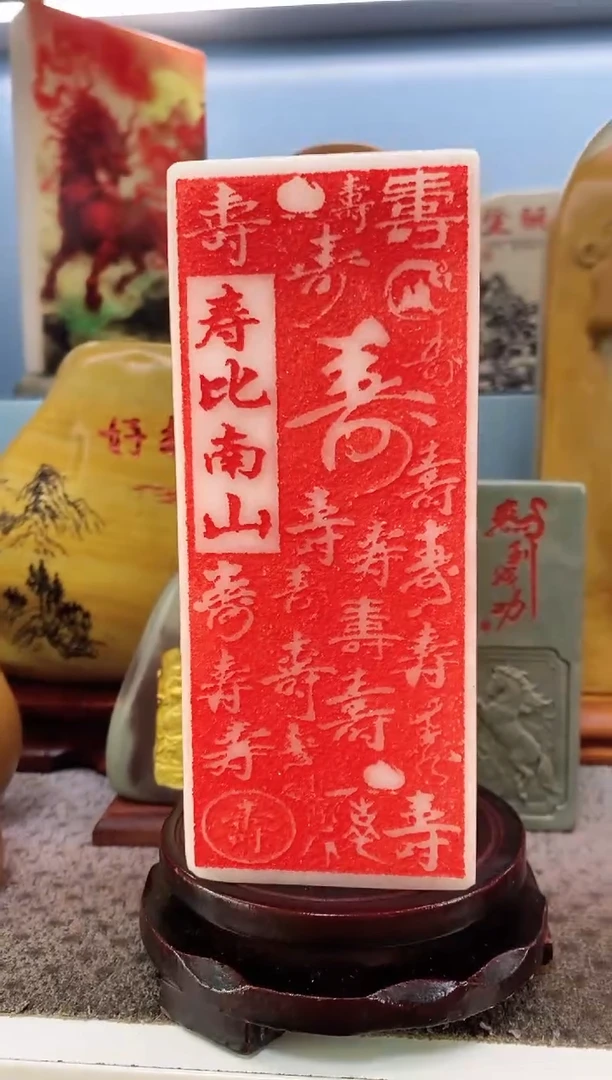 寿比南山
寿
壽
壽
寿
寿
寿
寿
寿
寿
寿
壽
寿
寿
寿
寿
寿
寿
寿
寿
好
马到成功